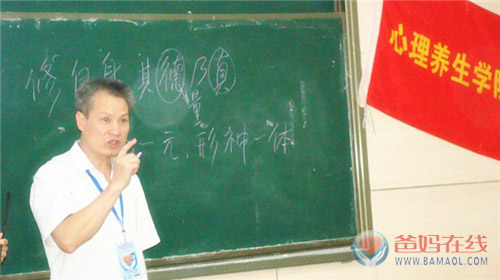 修自身 其德乃真
量
一元,形神一体
心理养生学院
爸妈在线
WWW.BAMAOL.COM